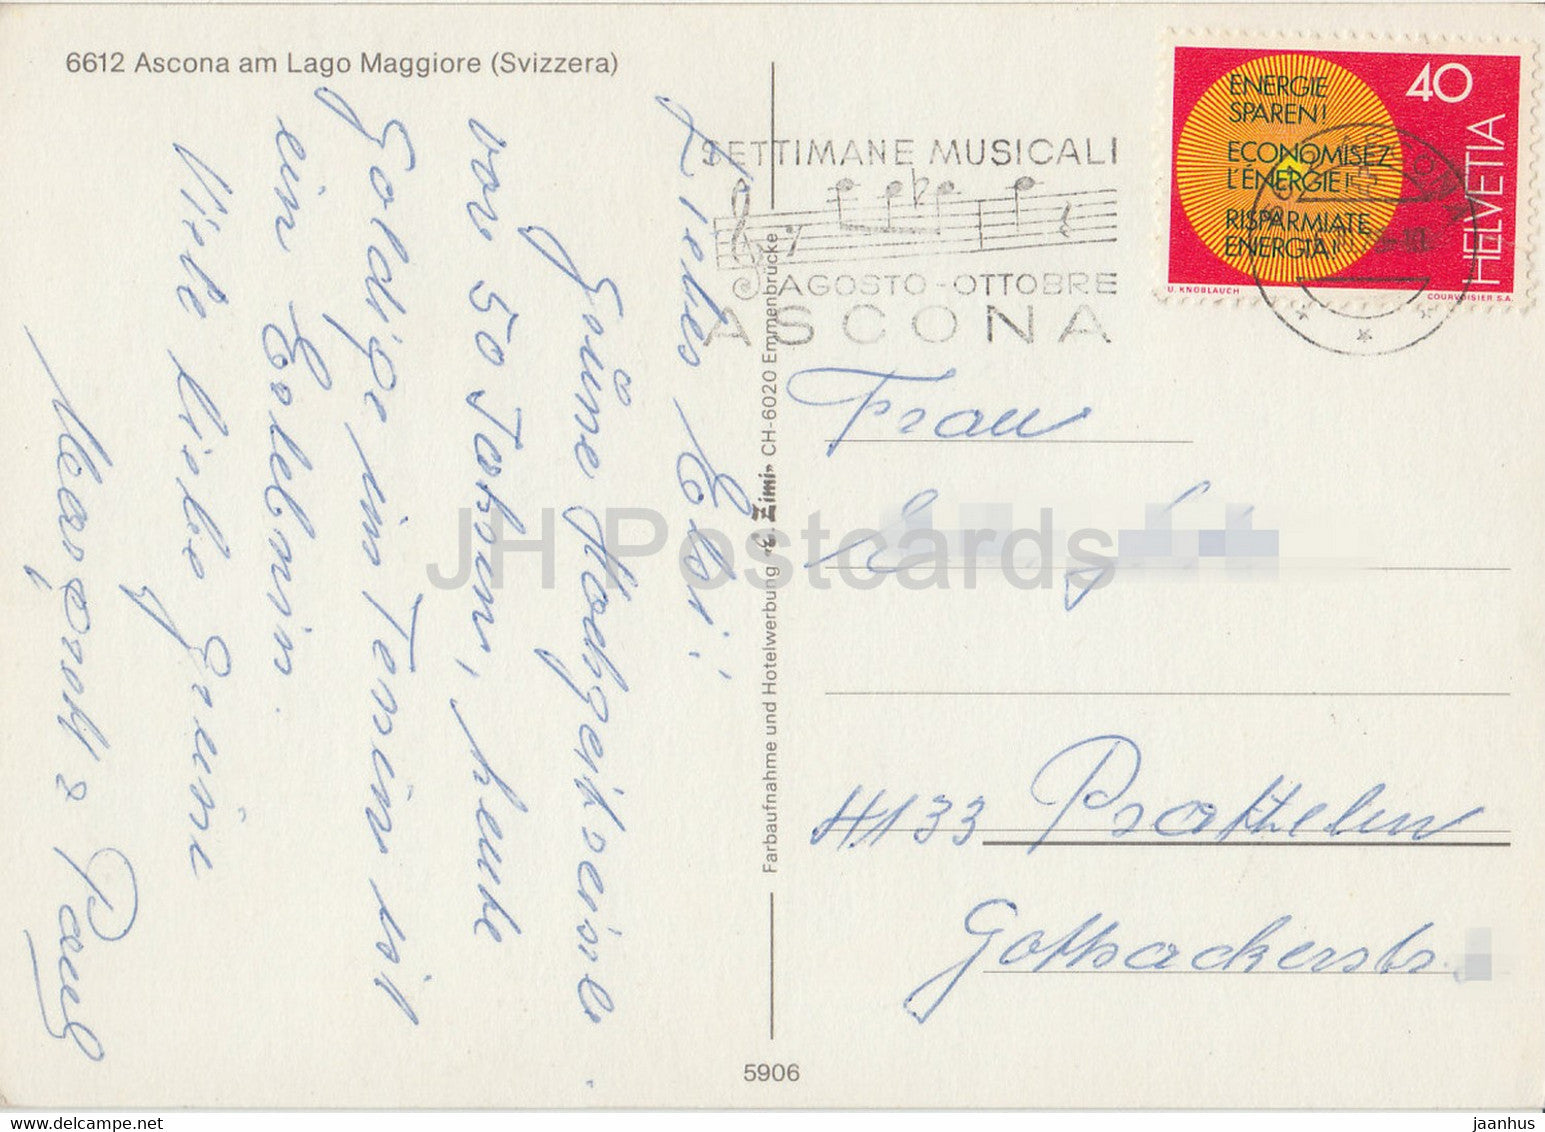 6612 Ascona am Lago Maggiore (Svizzera)
Liebes Elsi!
Grüne Hochzeitsreise
vor 50 Jahren, heute
Goldige im Tessin ist
ein Erlebnis.
Viele liebe Grüsse
Margrith & Paul
SETTIMANE MUSICALI
AGOSTO - OTTOBRE
ASCONA
ENERGIE
SPAREN!
ECONOMISEZ
L'ÉNERGIE!
RISPARMIATE
ENERGIA!
40
HELVETIA
U. KNOBLAUCH
COURVOISIER S.A.
ASCONA
Farbaufnahme und Hotelwerbung «E. Zimi» CH-6020 Emmenbrücke
Frau
4133 Pratteln
Gottsackerstr.
5906
JH Postcards
jaanhus